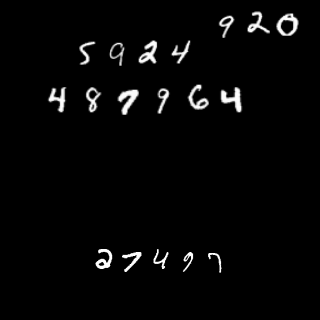 920
5924
487964
27497